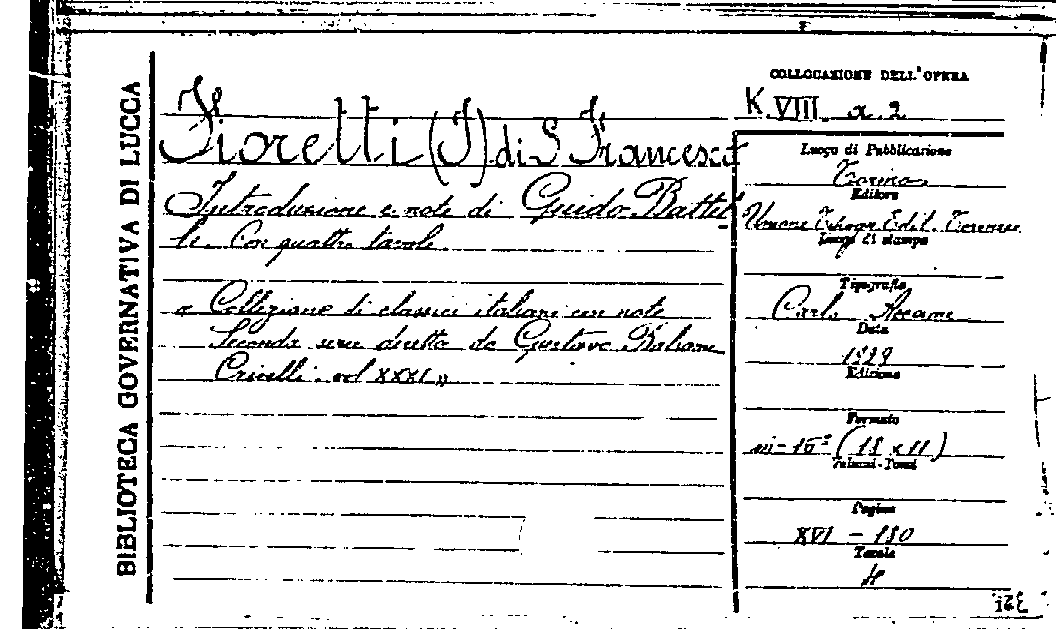 BIBLIOTECA GOVERNATIVA DI LUCCA
Fioretti (I) di S. Francesco
Introduzione e note di Guido Battel
le. Con quattro tavole.
« Collezione di classici italiani con note
Seconda serie diretta da Gustavo Balsamo
Crivelli. vol XXXI »
COLLOCAZIONE DELL'OPERA
K. VIII. a. 2
Luogo di Pubblicazione
Torino
Editore
Unione Tipogr. Edit. Torinese
Luogo di stampa
Tipografia
Carlo Accame
Data
Edizione
Formato
in-16º (18 x 11)
Volumi-Tomi
Pagine
XVI - 180
Tavole
4